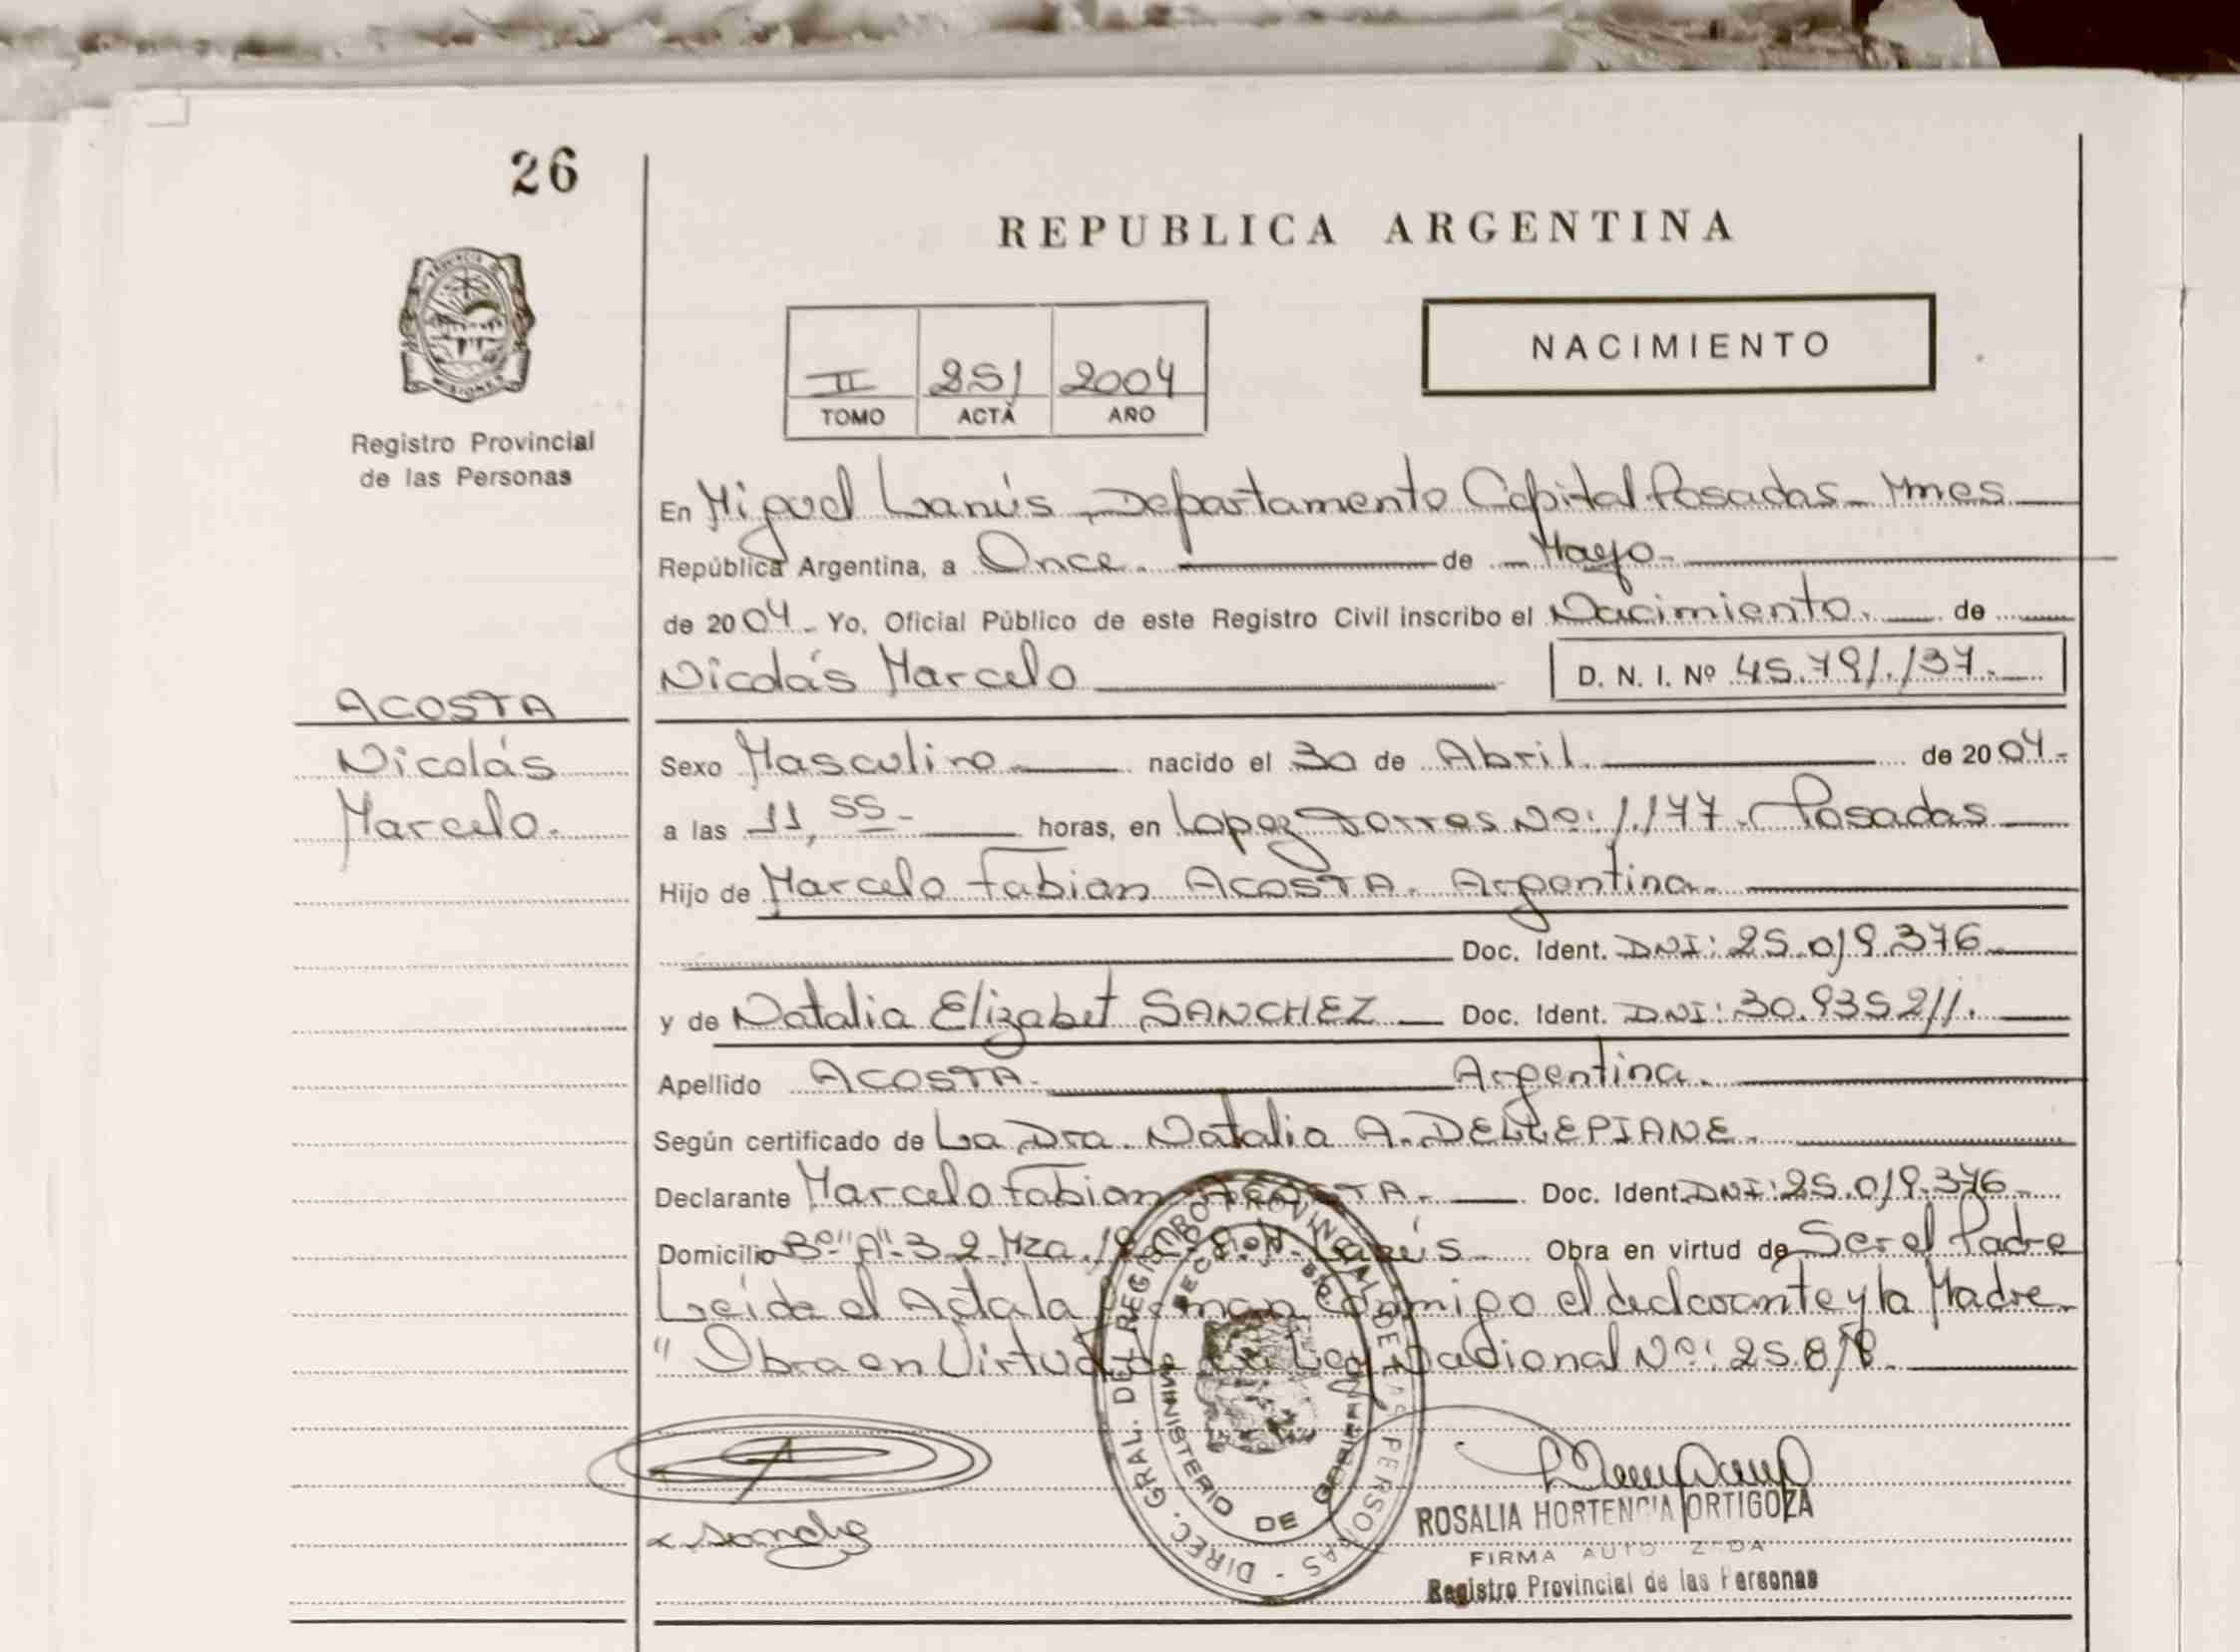 26
REPUBLICA ARGENTINA
NACIMIENTO
II 251 2004
TOMO ACTA AÑO
PROVINCIA DE
MISIONES
Registro Provincial
de las Personas
En Miguel Lanús Departamento Capital Posadas - Mnes
República Argentina, a Once. de Mayo.
de 2004. Yo, Oficial Público de este Registro Civil inscribo el Nacimiento. de
Nicolás Marcelo D. N. I. Nº 45.791.137.
ACOSTA
Nicolás
Marcelo.
Sexo Masculino nacido el 30 de Abril. de 2004.
a las 11,55- horas, en Lopez Torres Nº: 1.177. Posadas
Hijo de Marcelo Fabian ACOSTA. Argentina.
Doc. Ident. DNI: 25.019.376
y de Natalia Elizabet SANCHEZ Doc. Ident. DNI: 30.935211.
Apellido ACOSTA. Argentina.
Según certificado de La Dra. Natalia A. DELLEPIANE.
Declarante Marcelo Fabian ACOSTA. Doc. Ident. DNI: 25.019.376
Domicilio Bº "A" 3 2 Mza. Lanús Obra en virtud de Ser el Padre
Leida el Acta la firman conmigo el declarante y la Madre
"Obra en Virtud de la Ley Nacional Nº: 25.819.
DIREC. GRAL. DEL REGISTRO PROVINCIAL DE LAS PERSONAS
MINISTERIO DE GOBIERNO
Sanche
ROSALIA HORTENCIA ORTIGOZA
FIRMA AUTORIZADA
Registro Provincial de las Personas